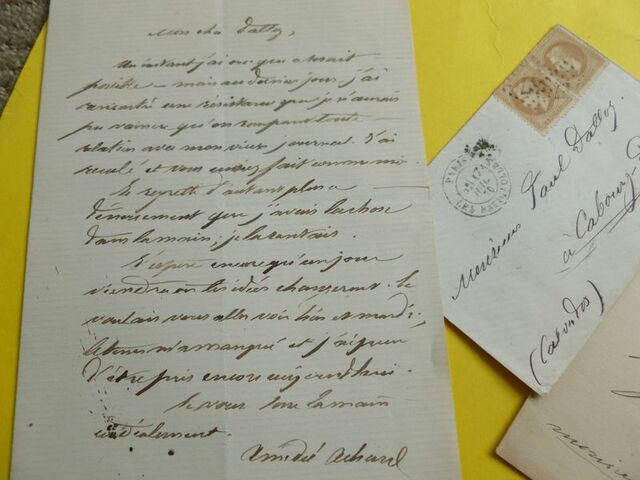 Mon cher Dalloz,
Un instant j'ai cru que ce serait
possible – mais au dernier jour j'ai
rencontré une résistance que je n'aurais
pu vaincre qu'en rompant toute
relation avec mon vieux journal. J'ai
reculé et vous auriez fait comme moi.
Je regrette d'autant plus
que j'avais la chose
dans la main; je la sentais.
J'espère encore qu'un jour
viendra où les idées changeront. Je
voulais vous aller voir hier et mardi.
Le temps m'a manqué et j'ai peur
d'être pris encore aujourd'hui.
Je vous serre la main
cordialement.
Amédée Achard
PARIS
Monsieur Paul Dalloz
à Cabourg
(Calvados)